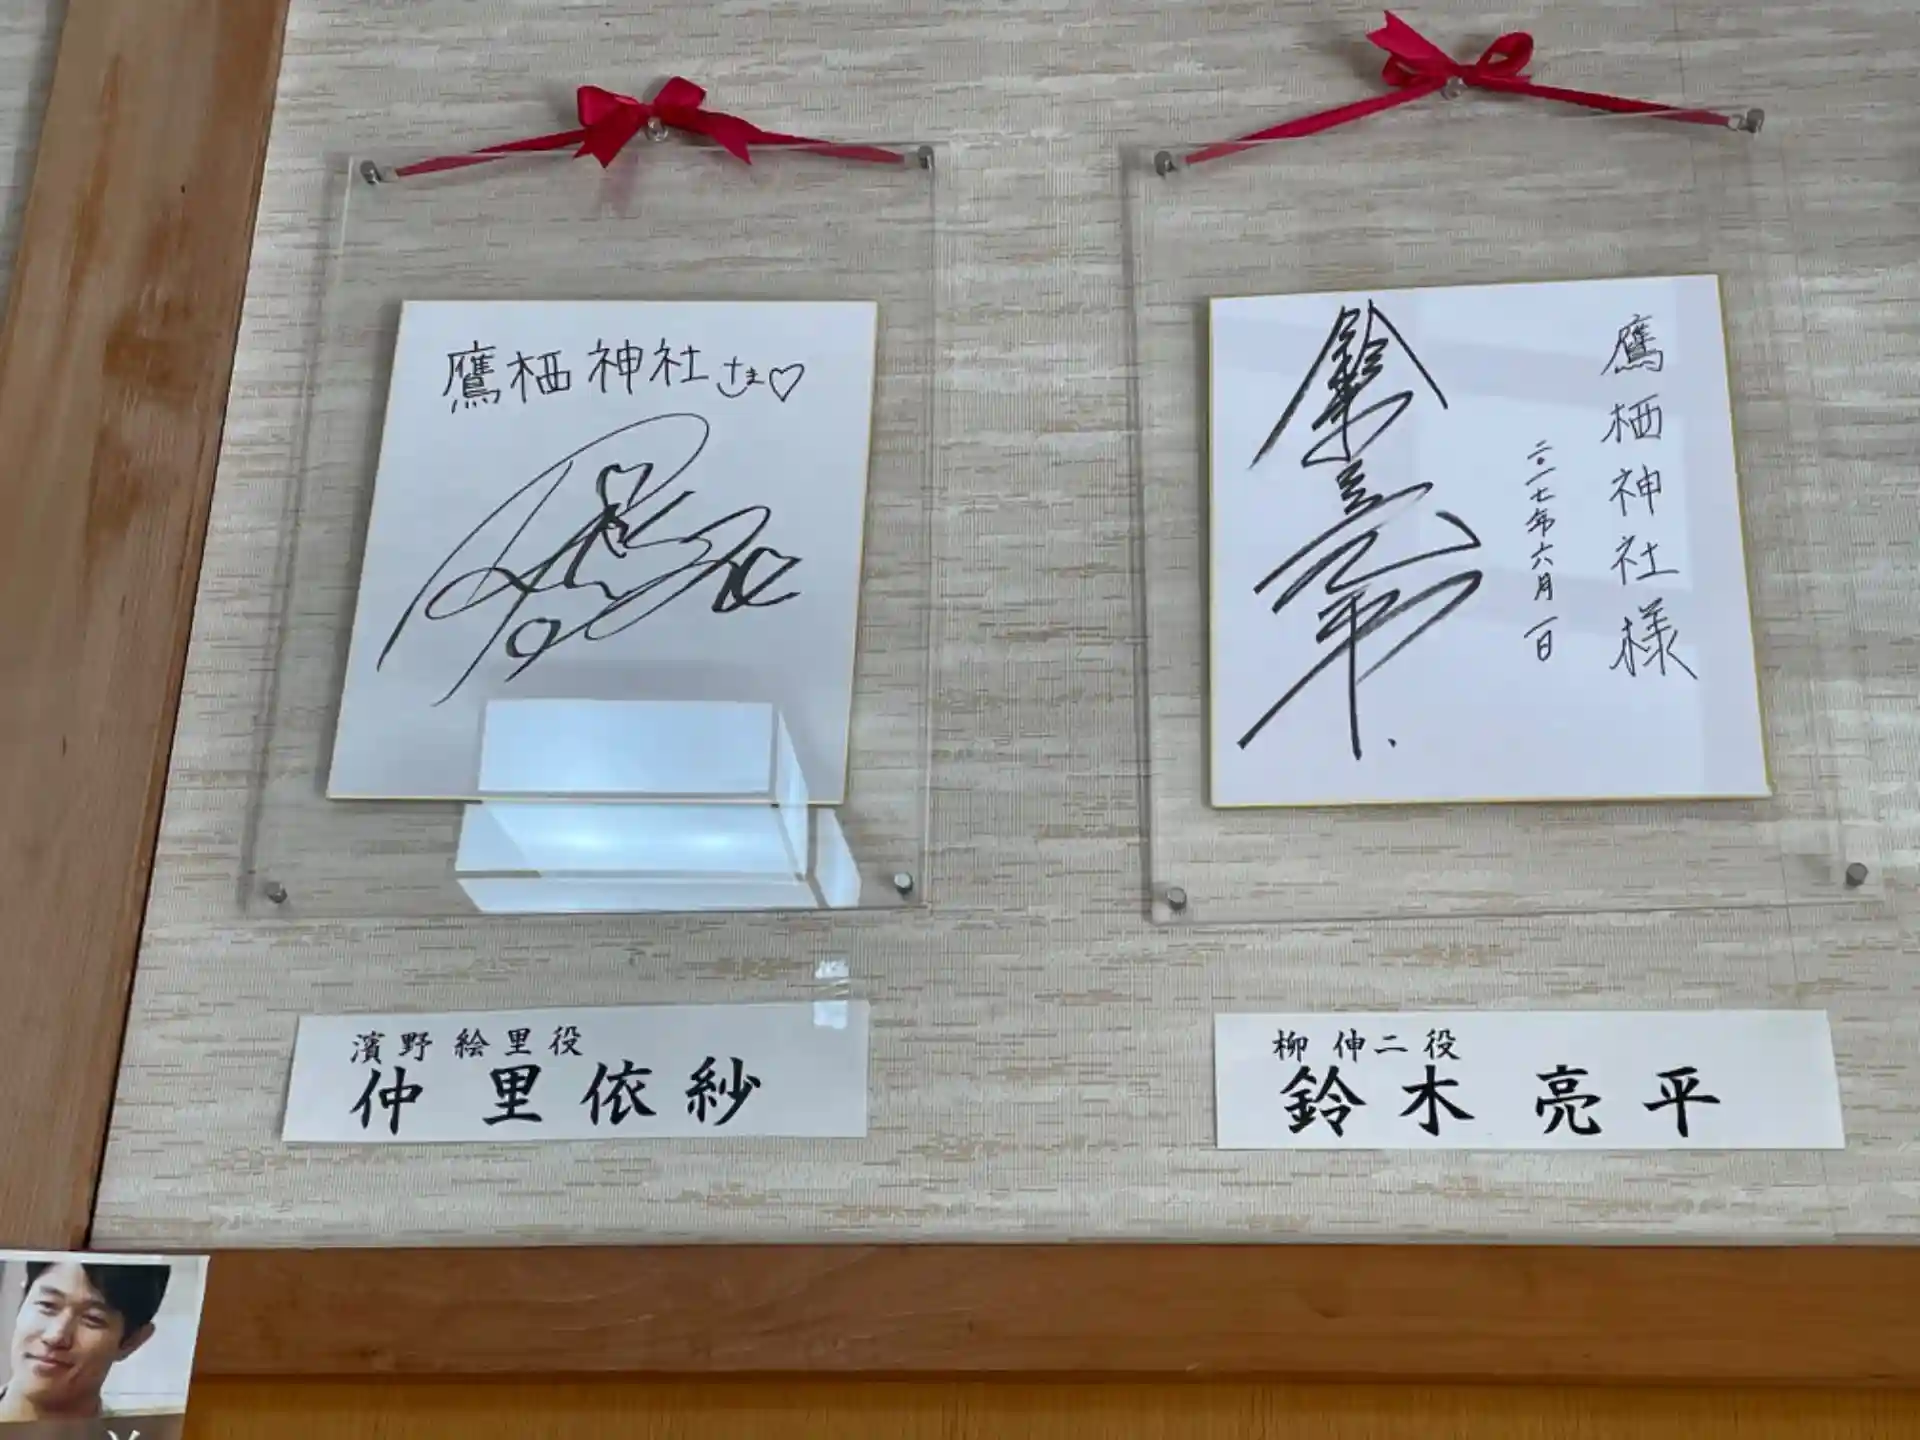 鷹栖神社さま♡
鷹栖神社様
二〇一七年六月一日
鈴木亮平
濱野絵里役
仲里依紗
柳伸二役
鈴木亮平